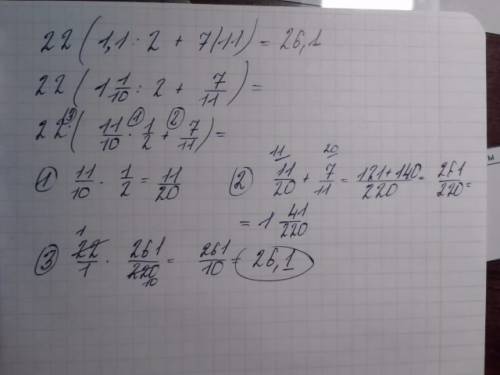 22 ( 1,1 : 2 + 7/11 ) = 26,1
22 ( 1 1/10 : 2 + 7/11 ) =
22 ·③ ( 11/10 ·① 1/2 +② 7/11 ) =
① 11/10 · 1/2 = 11/20 ② 11/20 (11) + 7/11 (20) = 121+140/220 = 261/220 =
= 1 41/220
③ 22/1 (1) · 261/220 (10) = 261/10 = 26,1